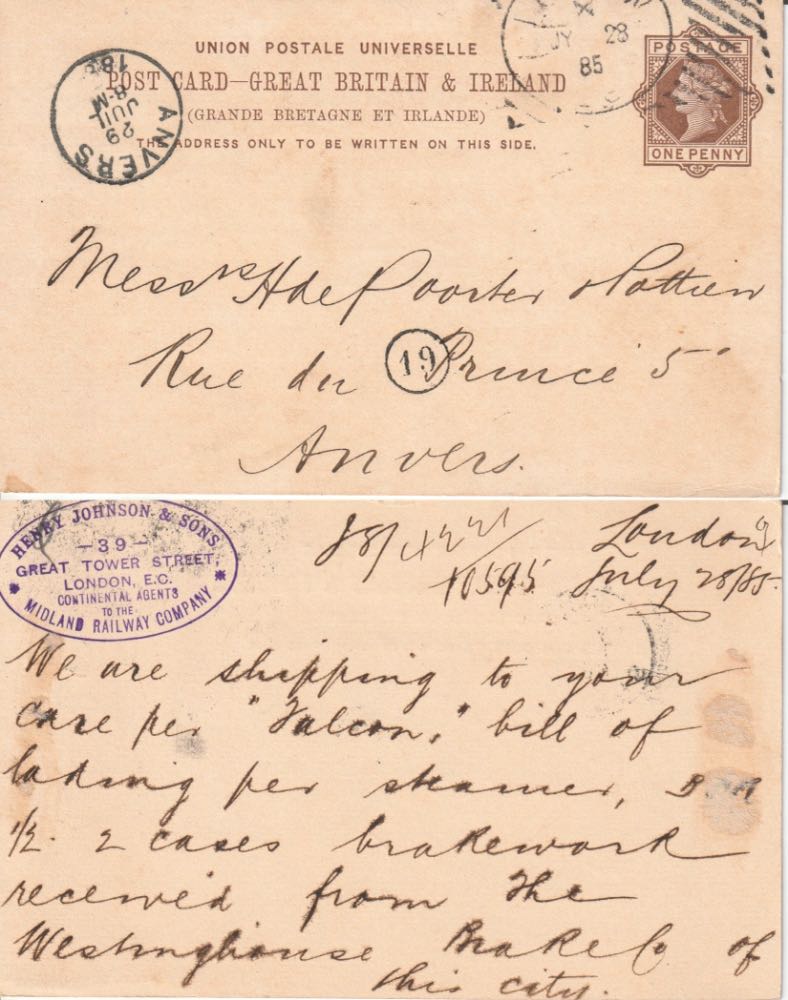 UNION POSTALE UNIVERSELLE
POST CARD—GREAT BRITAIN & IRELAND
(GRANDE BRETAGNE ET IRLANDE)
THE ADDRESS ONLY TO BE WRITTEN ON THIS SIDE.
ANVERS
8-M
29
JUIL
188
X
JY 28
85
POSTAGE
ONE PENNY
Messrs H de Poorter & Pottien
Rue du Prince 5
19
Anvers.
HENRY JOHNSON & SONS
-39-
GREAT TOWER STREET,
LONDON, E.C.
CONTINENTAL AGENTS
TO THE
MIDLAND RAILWAY COMPANY
London
10595 July 28/85
We are shipping to your
care per "Falcon," bill of
lading per steamer,
1/2. 2 cases brakework
received from The
Westinghouse Brake Co of
this city.